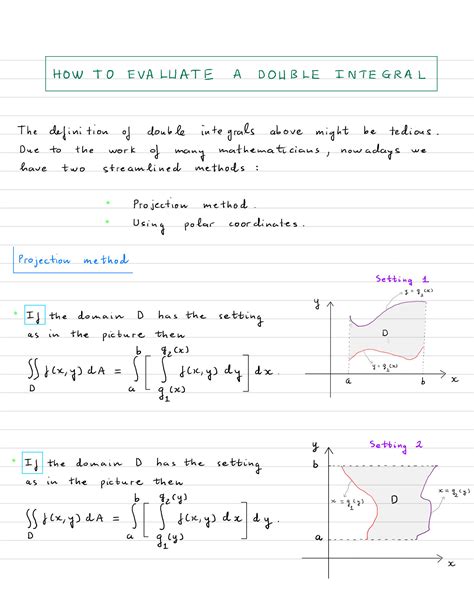 HOW TO EVALUATE A DOUBLE INTEGRAL
The definition of double integrals above might be tedious.
Due to the work of many mathematicians, nowadays we
have two streamlined methods :
• Projection method.
• Using polar coordinates.
Projection method
Setting 1
• If the domain D has the setting
as in the picture then
∬_D f(x,y) dA = ∫_a^b [ ∫_{g₁(x)}^{g₂(x)} f(x,y) dy ] dx .
y
y = g₂(x)
D
y = g₁(x)
a b x
Setting 2
• If the domain D has the setting
as in the picture then
∬_D f(x,y) dA = ∫_a^b [ ∫_{g₁(y)}^{g₂(y)} f(x,y) dx ] dy .
y
b
x = g₁(y) D x = g₂(y)
a
x